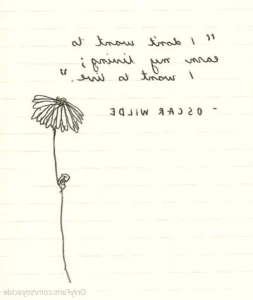 "I don't want to
earn my living;
I want to live."
- OSCAR WILDE
OnlyFans.com/royacide